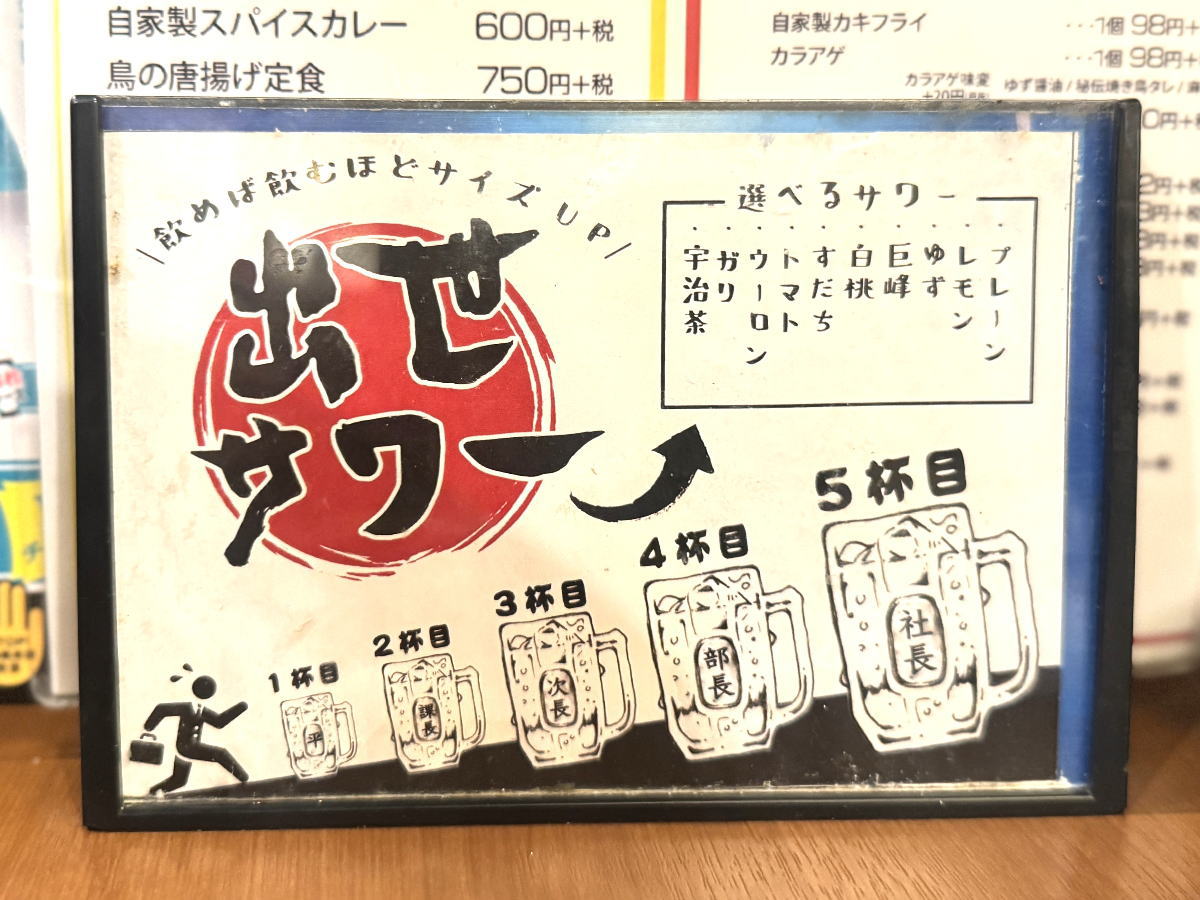 自家製スパイスカレー 600円+税
鳥の唐揚げ定食 750円+税
自家製カキフライ ･･･1個 98円+
カラアゲ ･･･1個 98円+
カラアゲ味変
+20円
ゆず醤油/秘伝焼き鳥タレ/
\飲めば飲むほどサイズUP/
出世
サワー
選べるサワー
プレーン
レモン
ゆず
巨峰
白桃
すだち
トマト
ウーロン
ガリ
宇治茶
1杯目
平
2杯目
課長
3杯目
次長
4杯目
部長
5杯目
社長